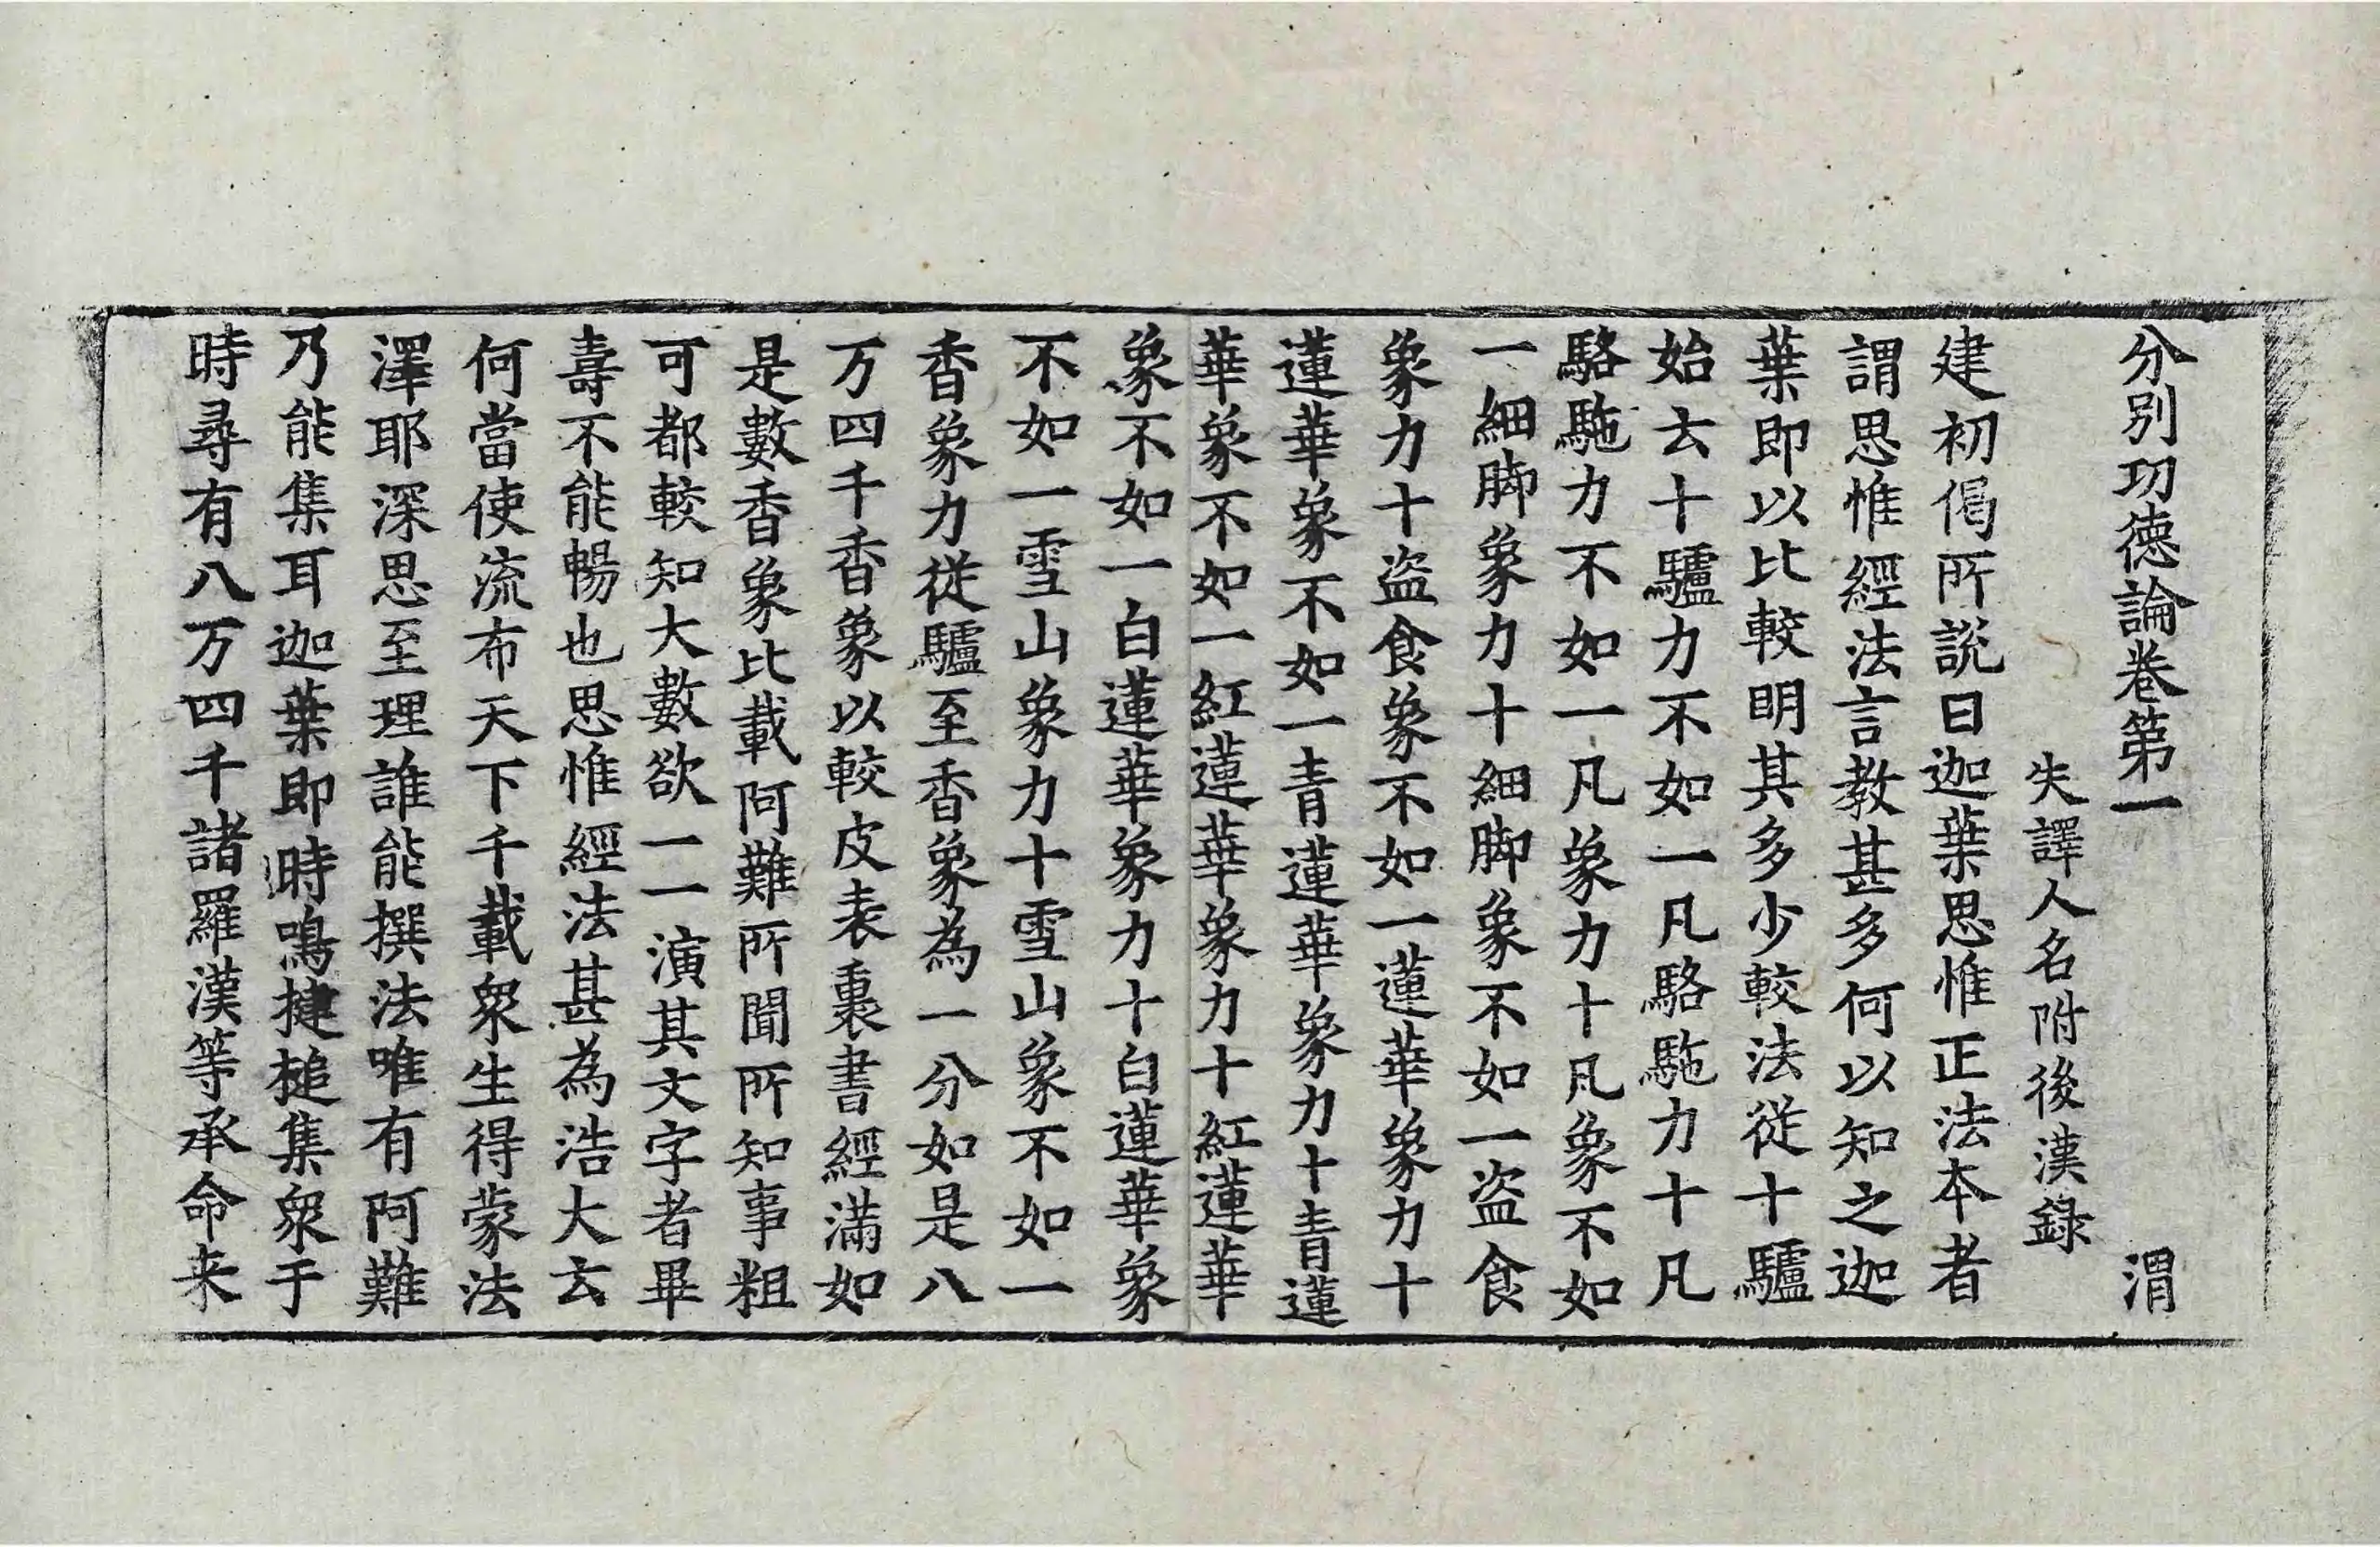 分別功德論卷第一 渭
失譯人名附後漢錄
建初偈所說曰迦葉思惟正法本者
謂思惟經法言教甚多何以知之迦
葉即以比較明其多少較法從十驢
始去十驢力不如一凡駱駞力十凡
駱駞力不如一凡象力十凡象不如
一細脚象力十細脚象不如一盜食
象力十盜食象不如一蓮華象力十
蓮華象不如一青蓮華象力十青蓮
華象不如一紅蓮華象力十紅蓮華
象不如一白蓮華象力十白蓮華象
不如一雪山象力十雪山象不如一
香象力從驢至香象為一分如是八
万四千香象以較皮表裏書經滿如
是數香象比載阿難所聞所知事粗
可都較知大數欲一一演其文字者畢
壽不能暢也思惟經法甚為浩大云
何當使流布天下千載衆生得蒙法
澤耶深思至理誰能撰法唯有阿難
乃能集耳迦葉即時鳴揵槌集衆于
時尋有八万四千諸羅漢等承命来